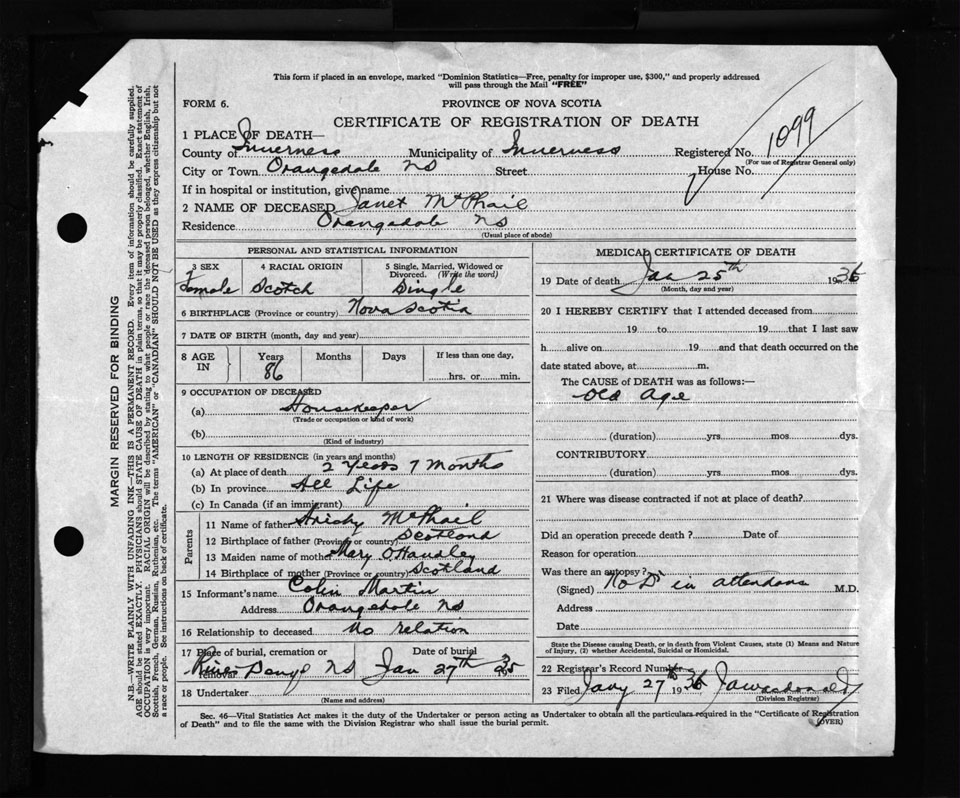 This form if placed in an envelope, marked "Dominion Statistics—Free, penalty for improper use, $300," and properly addressed
will pass through the Mail "FREE"
FORM 6.
PROVINCE OF NOVA SCOTIA
CERTIFICATE OF REGISTRATION OF DEATH
1099
1 PLACE OF DEATH—
County of Inverness Municipality of Inverness Registered No.
(For use of Registrar General only)
City or Town Orangedale NS Street House No.
If in hospital or institution, give name
2 NAME OF DECEASED Janet McPhail
Residence Orangedale NS
(Usual place of abode)
PERSONAL AND STATISTICAL INFORMATION
3 SEX 4 RACIAL ORIGIN 5 Single, Married, Widowed or Divorced. (Write the word)
Female Scotch Single
6 BIRTHPLACE (Province or country) Nova Scotia
7 DATE OF BIRTH (month, day and year)
8 AGE IN Years Months Days If less than one day,
86 hrs. or min.
9 OCCUPATION OF DECEASED
(a) Housekeeper
(Trade or occupation or kind of work)
(b)
(Kind of industry)
10 LENGTH OF RESIDENCE (in years and months)
(a) At place of death 2 Years 7 Months
(b) In province All Life
(c) In Canada (if an immigrant)
Parents
11 Name of father McPhail
12 Birthplace of father (Province or country) Scotland
13 Maiden name of mother Mary O'Handley
14 Birthplace of mother (Province or country) Scotland
15 Informant's name Colin Martin
Address Orangedale NS
16 Relationship to deceased No relation
17 Place of burial, cremation or removal Date of burial
River Denys NS Jan 27th
18 Undertaker
(Name and address)
MEDICAL CERTIFICATE OF DEATH
19 Date of death Jan 25th 1936
(Month, day and year)
20 I HEREBY CERTIFY that I attended deceased from
19 to 19 that I last saw
h alive on 19 and that death occurred on the
date stated above, at m.
The CAUSE of DEATH was as follows:—
Old Age
(duration) yrs mos dys.
CONTRIBUTORY
(duration) yrs mos dys.
21 Where was disease contracted if not at place of death?
Did an operation precede death? Date of
Reason for operation
Was there an autopsy?
(Signed) No Dr in attendans M.D.
Address
Date
State the Disease causing Death, or in death from Violent Causes, state (1) Means and Nature
of Injury, (2) whether Accidental, Suicidal or Homicidal.
22 Registrar's Record Number
23 Filed Jany 27th 1936
(Division Registrar)
Sec. 46—Vital Statistics Act makes it the duty of the Undertaker or person acting as Undertaker to obtain all the particulars required in the "Certificate of Registration
of Death" and to file the same with the Division Registrar who shall issue the burial permit.
(OVER)
MARGIN RESERVED FOR BINDING
N.B.—WRITE PLAINLY WITH UNFADING INK—THIS IS A PERMANENT RECORD. Every item of information should be carefully supplied.
AGE should be stated EXACTLY. PHYSICIANS should STATE CAUSE OF DEATH in plain terms, so that it may be properly classified. Exact statement of
OCCUPATION is very important. RACIAL ORIGIN will be described by stating to what people or race the deceased person belonged, whether English, Irish,
Scottish, French, German, Russian, Ruthenian, etc. The terms "AMERICAN" or "CANADIAN" SHOULD NOT BE USED as they express citizenship but not
a race or people. See instructions on back of certificate.